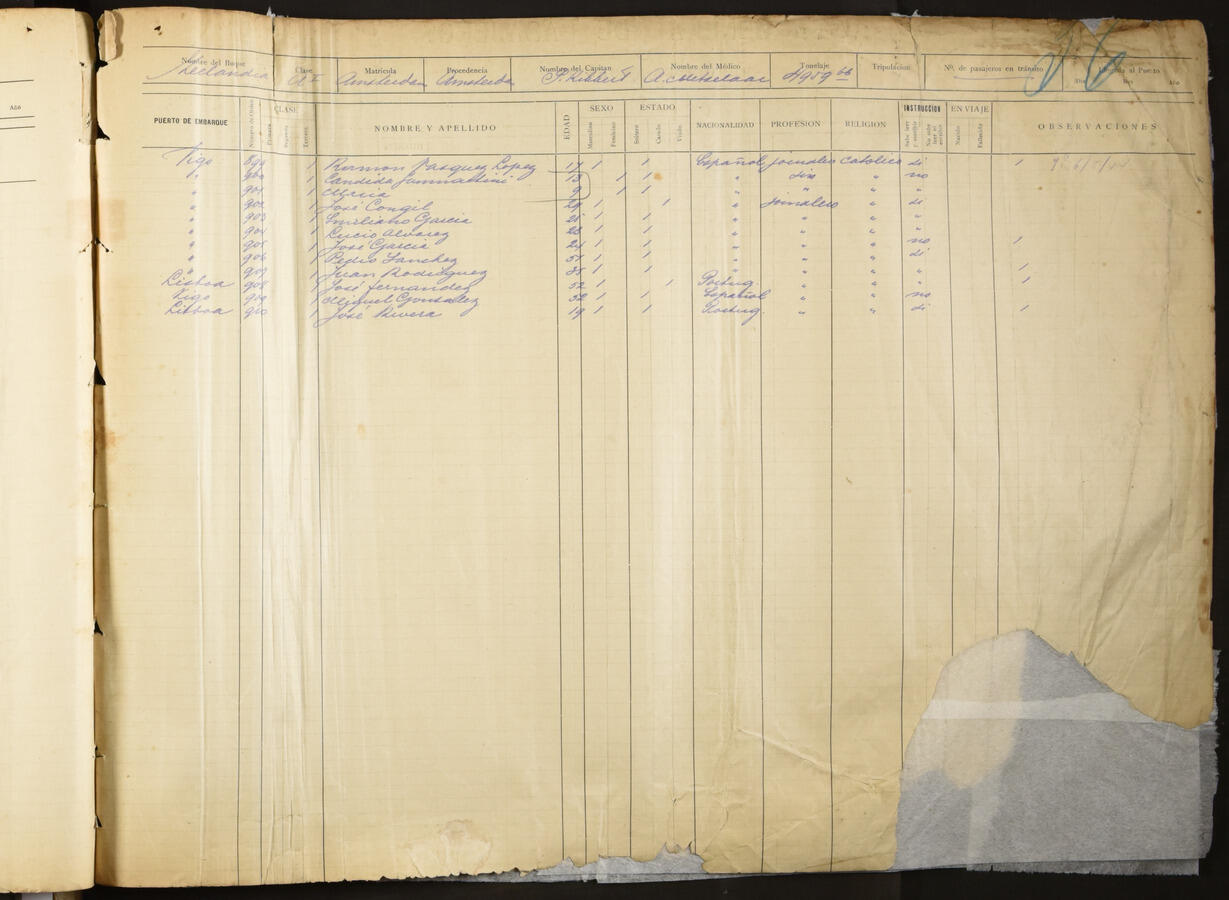 Año
Nombre del Buque Clase Matrícula Procedencia Nombre del Capitan Nombre del Médico Tonelaje Tripulacion Nº. de pasajeros en tránsito al Puerto
Zeelandia Amsterdam Amsterdam A. Metselaar 4959 66
Dia Mes Año
PUERTO DE EMBARQUE CLASE NOMBRE Y APELLIDO EDAD SEXO ESTADO NACIONALIDAD PROFESION RELIGION INSTRUCCION EN VIAJE OBSERVACIONES
Primera Segunda Tercera Masculino Femenino Soltero Casado Viudo Sabe leer y escribir No sabe leer ni escribir Nacido Fallecido
Vigo 899 1 Ramon Vasquez Lopez 17 1 1 Español jornalero católica si 1
" 900 1 Candida 13 1 1 " " no
" 901 1 Maria 9 1 1 " " " "
" 902 1 José Congil 29 1 1 " jornalero " si
" 903 1 Emiliano Garcia 1 1 " " " "
" 904 1 Lucio Alvarez 1 1 " " " "
" 905 1 José Garcia 24 1 1 " " " no 1
" 906 1 Pedro Sanchez 1 1 " " " si
" 907 1 Juan Rodriguez 1 1 " " " " 1
Lisboa 908 1 José Fernandez 52 1 1 Portug. " " " 1
Vigo 909 1 Miguel Gonzalez 32 1 1 Español " " no
Lisboa 910 1 José Rivera 19 1 1 Portug. " " si 1